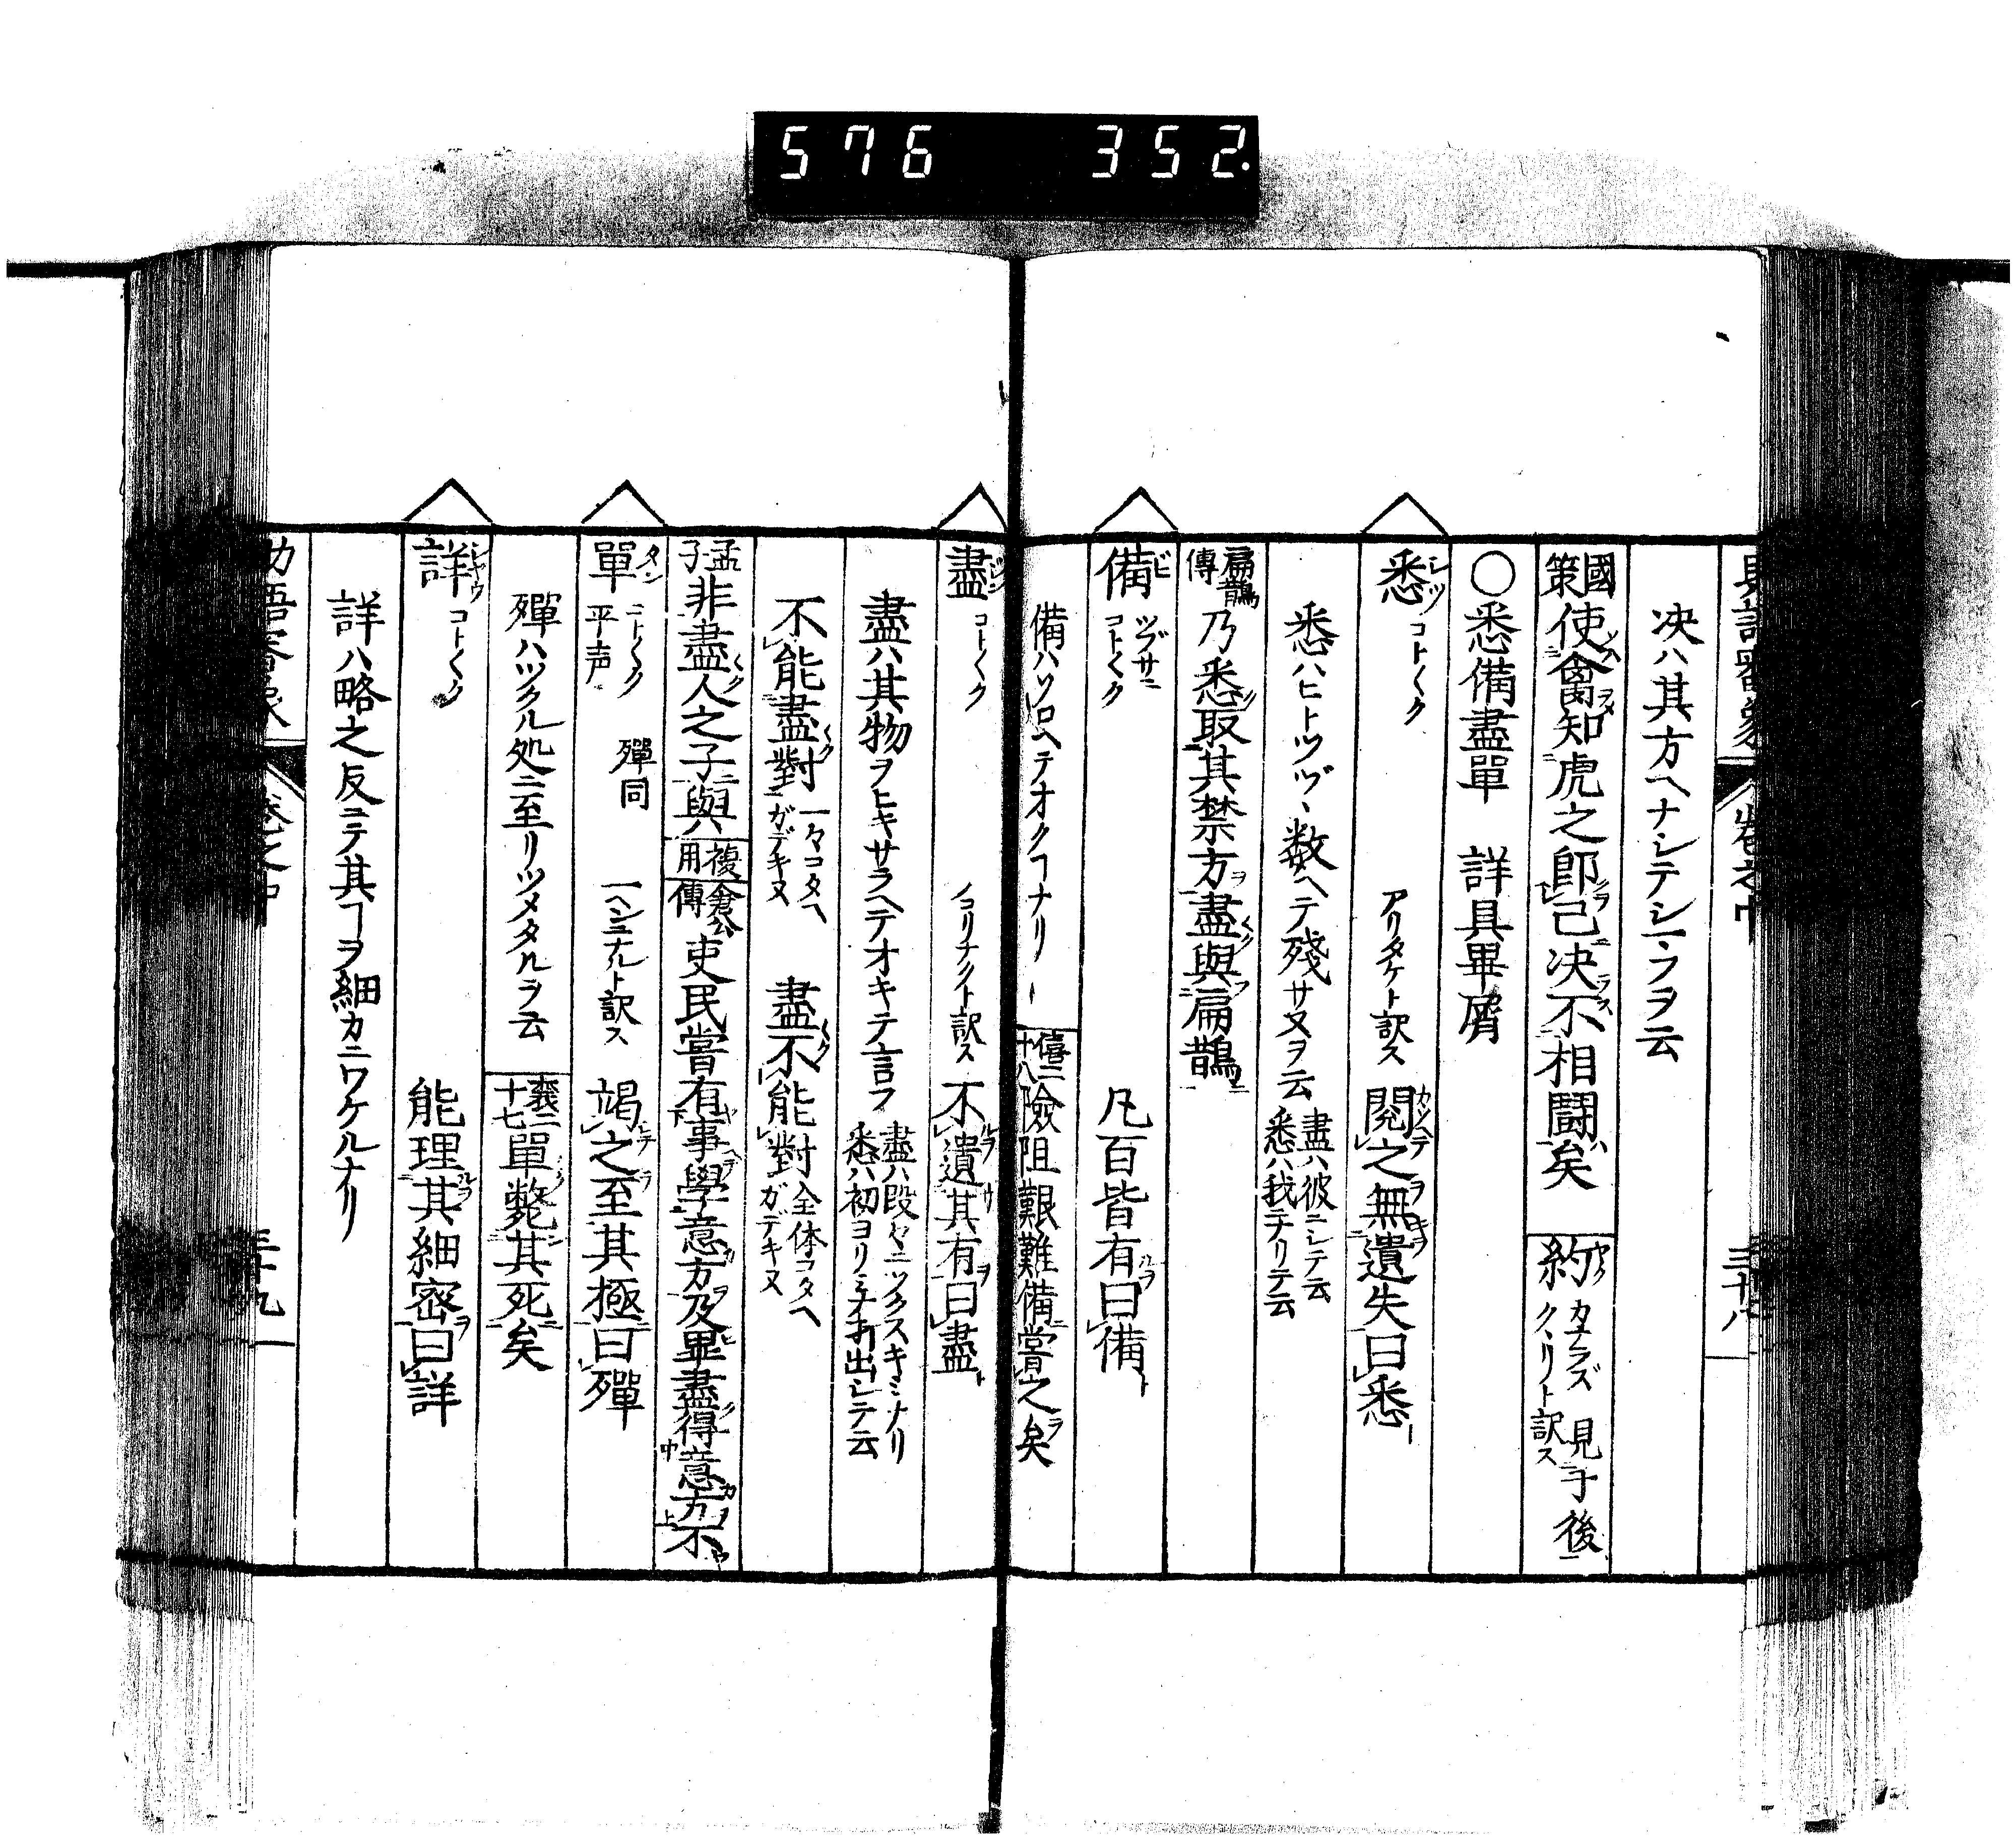 576 352.
決ハ其方ヘナシテシマフヲ云
國策 使禽知虎之即己决不相鬪矣 約 ヤク カナラズ 見于後 クヽリト訳ス
○悉備盡單 詳具畢屑
悉 シツ コト〱ク アリタケト訳ス 閱之無遺失曰悉
悉ハヒトツヅヽ数ヘテ殘サヌヲ云 盡ハ彼ニシテ云 悉ハ我ヨリテ云
扁鵲傳 乃悉取其禁方盡與扁鵲
備 ビ ツブサニ コト〱ク 凡百皆有曰備
備ハソロヘテオクヿナリ 僖二十八 險阻艱難備嘗之矣
盡 ジン コト〱ク ノコリナクト訳ス 不遺其有曰盡
盡ハ其物ヲヒキサラヘテオキテ言フ 盡ハ段々ニツクスキミナリ 悉ハ初ヨリミナ出シテ云
不能盡對 一々コタヘガデキヌ 盡不能對 全体コタヘガデキヌ
孟子 非盡人之子與 複用 倉公傳 吏民嘗有事學意方及畢盡得意方不
單 タン コト〱ク 平声 殫同 一ヘンニナルト訳ス 竭之至其極曰殫
殫ハツクル処ニ至リツメタルヲ云 襄二十七 單斃其死矣
詳 シヤウ コト〱ク 能理其細密曰詳
詳ハ略之反ニテ其ヿヲ細カニワケルナリ